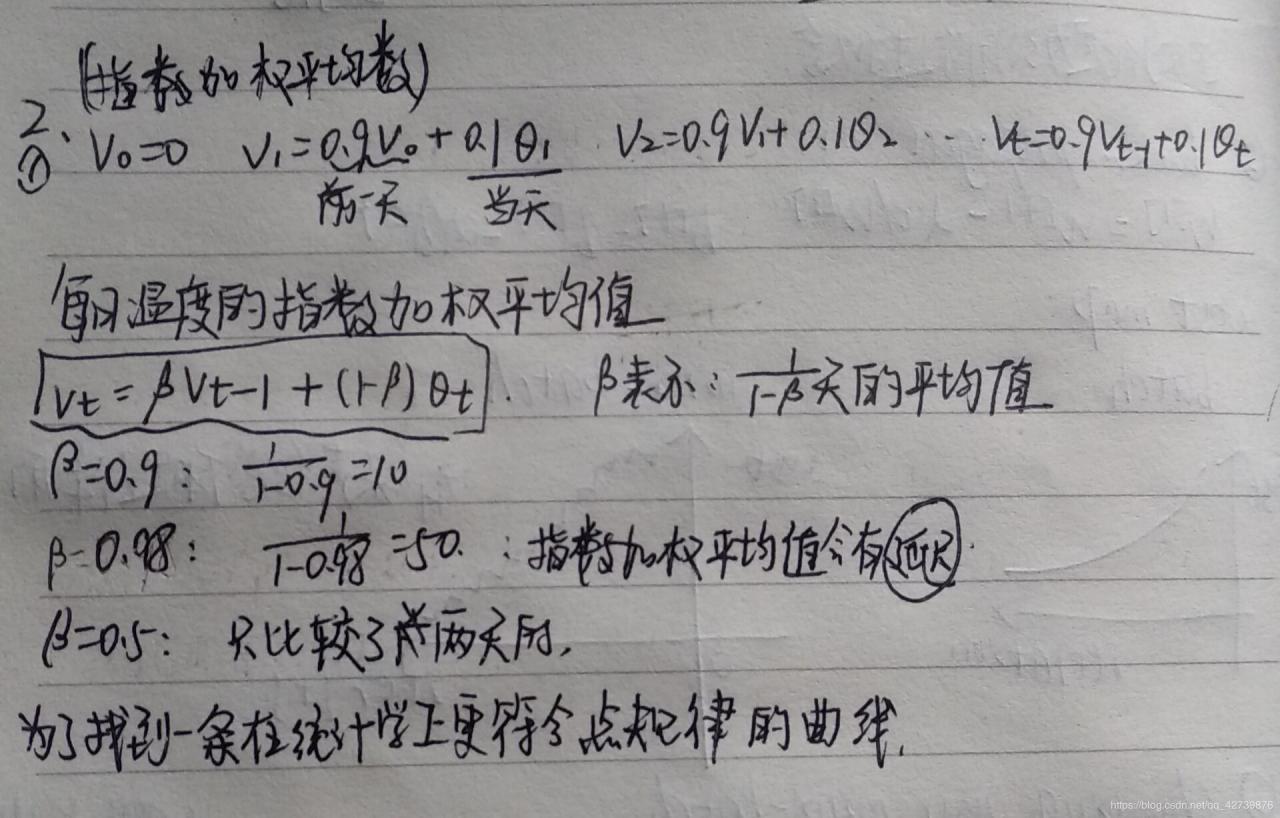 (指数加权平均数)
2、
① V₀=0 V₁=0.9V₀+0.1θ₁ V₂=0.9V₁+0.1θ₂ … Vt=0.9Vt-1+0.1θt
前一天 当天
每日温度的指数加权平均值
Vt=βVt-1+(1-β)θt. β表示：1/(1-β)天的平均值
β=0.9： 1/(1-0.9)=10
β=0.98： 1/(1-0.98)=50. ：指数加权平均值会有延迟.
β=0.5： 只比较了 两天的.
为了找到一条在统计学上更符合点规律的曲线.
https://blog.csdn.net/qq_42739876